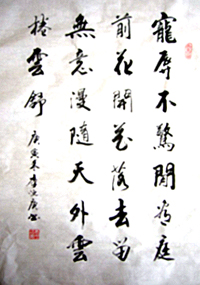 寵辱不驚閒看庭
前花開花落去留
無意漫隨天外雲
捲雲舒
庚寅